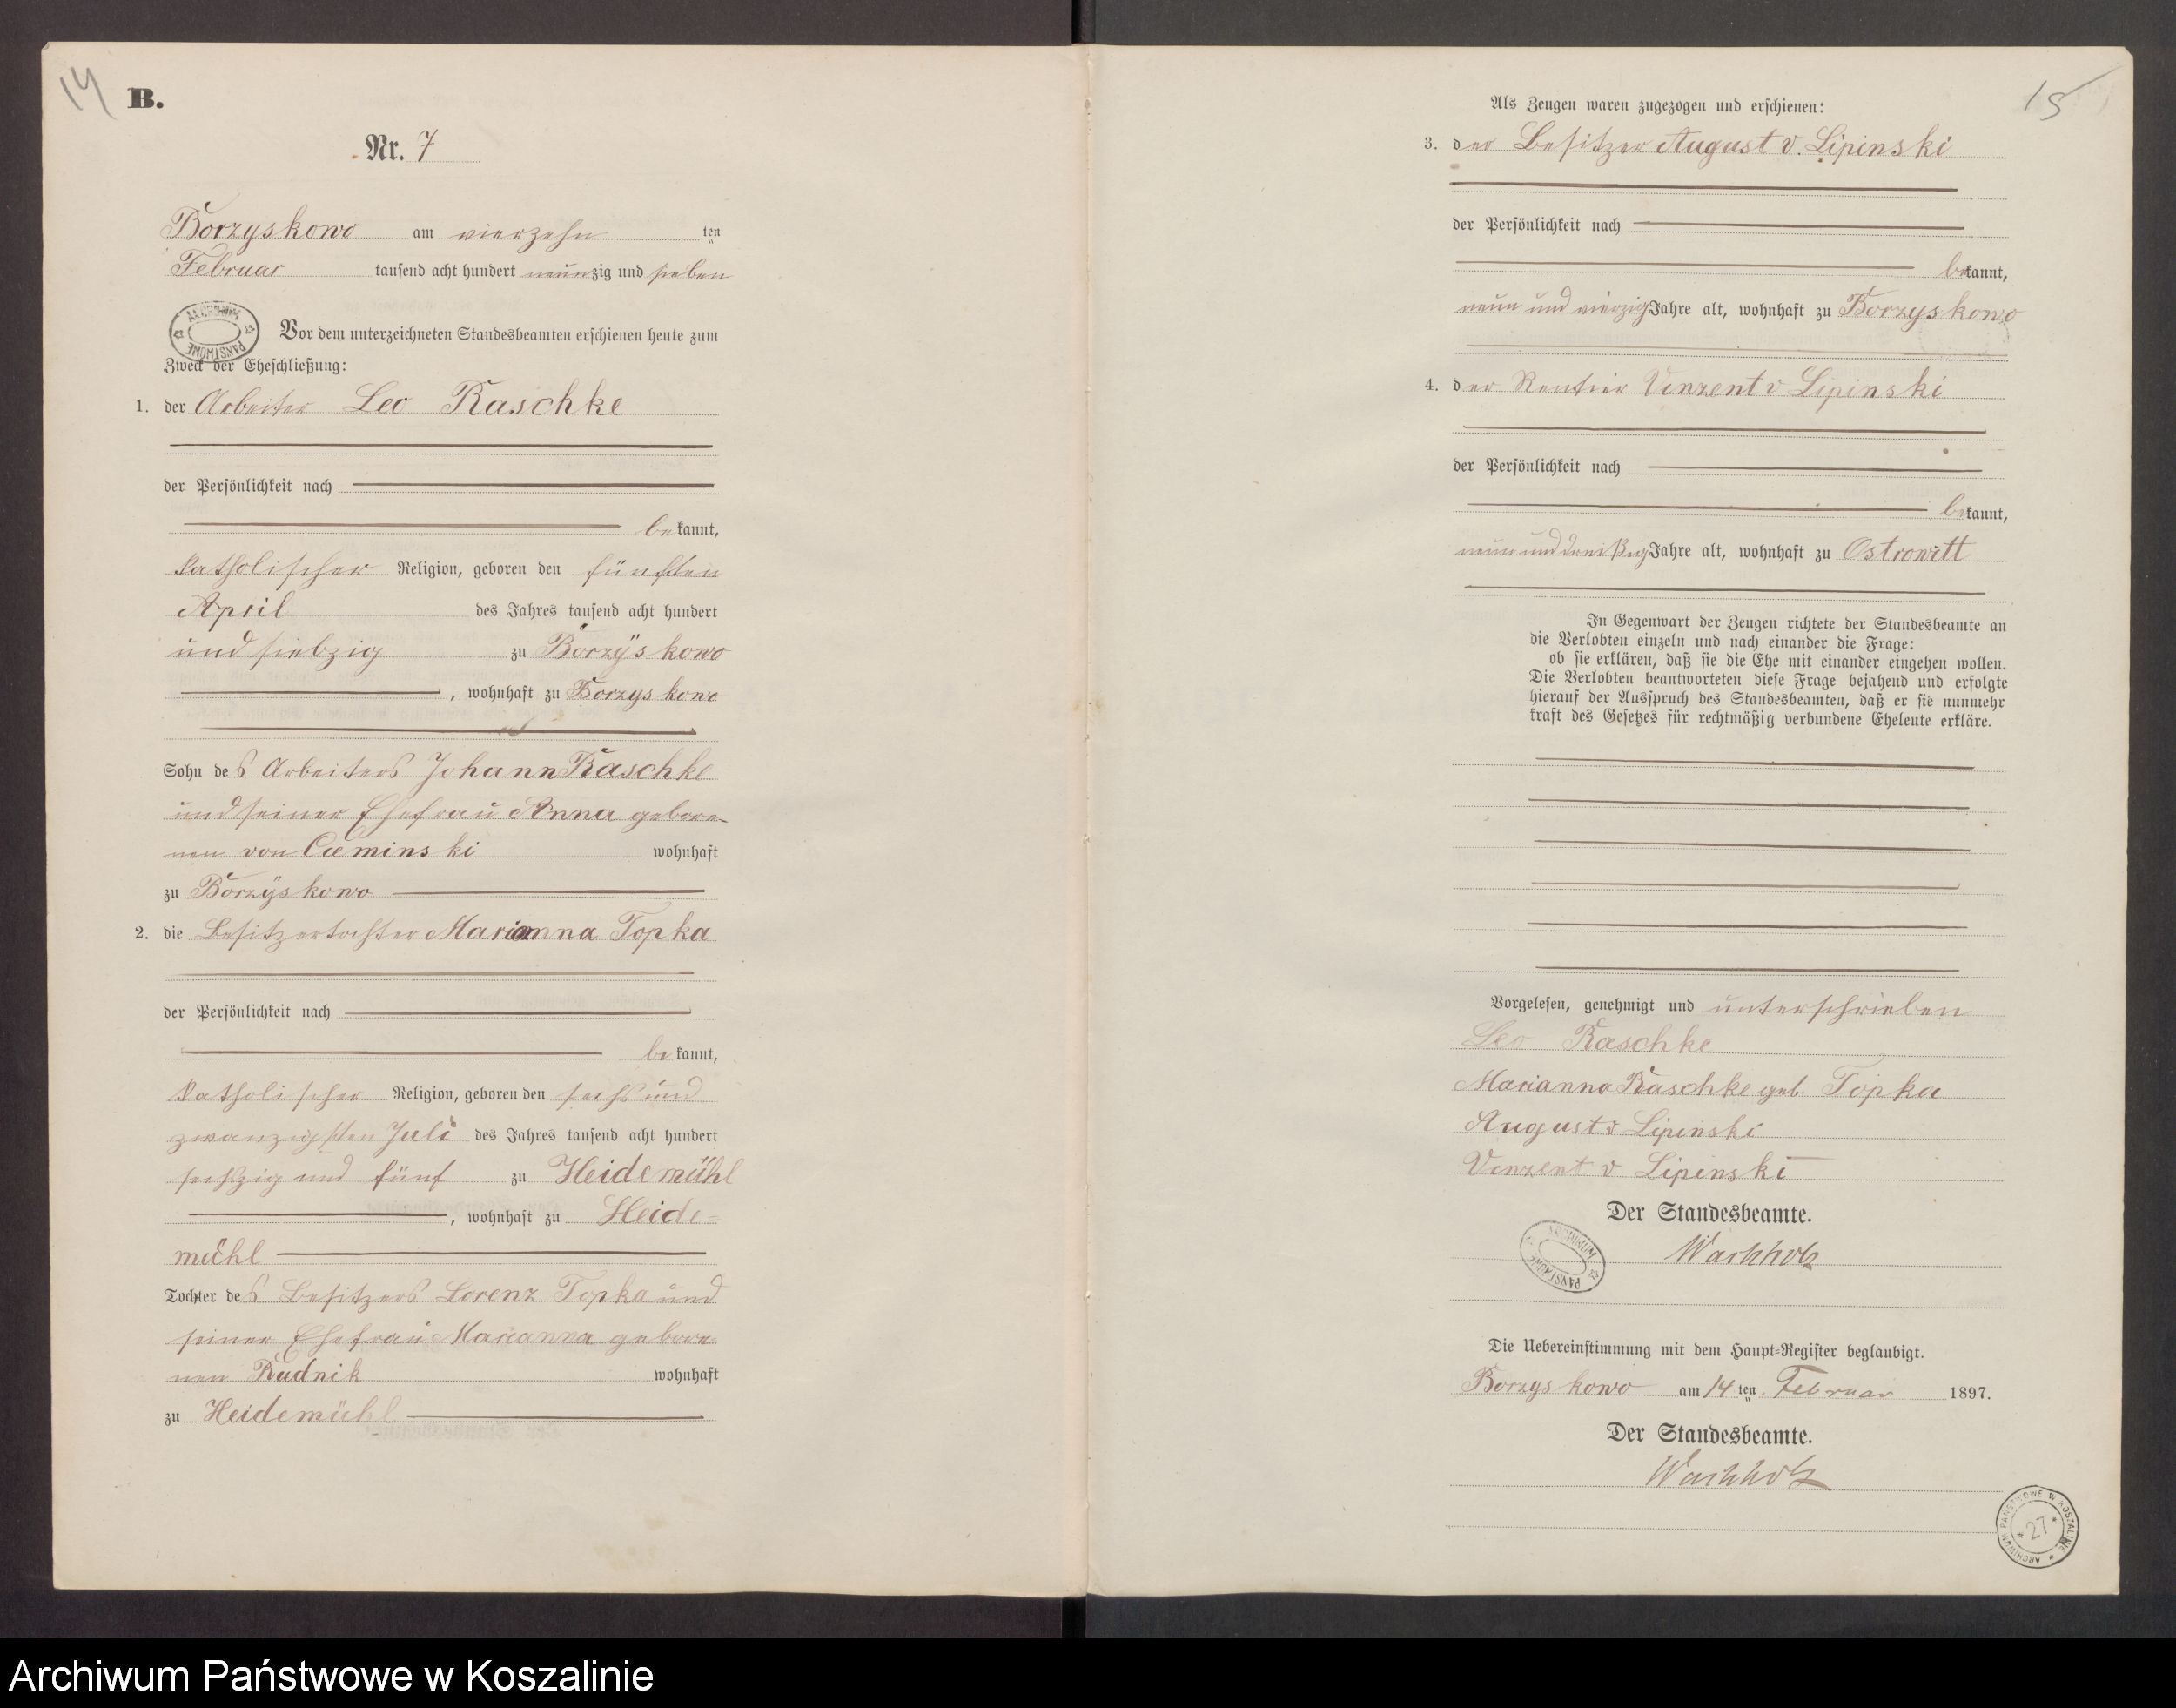 14
B.
Nr. 7
Borzyskowo am vierzehn ten
Februar tausend acht hundert neunzig und sieben
ARCHIWUM PAŃSTWOWE
Vor dem unterzeichneten Standesbeamten erschienen heute zum
Zweck der Eheschließung:
1. der Arbeiter Leo Raschke
der Persönlichkeit nach
bekannt,
katholischer Religion, geboren den fünften
April des Jahres tausend acht hundert
und siebzig zu Borzyskowo
, wohnhaft zu Borzyskowo
Sohn des Arbeiters Johann Raschke
und seiner Ehefrau Anna gebore-
nen von Cieminski wohnhaft
zu Borzyskowo
2. die Besitzertochter Marianna Topka
der Persönlichkeit nach
bekannt,
katholischer Religion, geboren den sechs und
zwanzigsten Juli des Jahres tausend acht hundert
sechszig und fünf zu Heidemühl
, wohnhaft zu Heide-
mühl
Tochter des Besitzers Lorenz Topka und
seiner Ehefrau Marianna gebore-
nen Rudnik wohnhaft
zu Heidemühl
15
Als Zeugen waren zugezogen und erschienen:
3. der Besitzer August v. Lipinski
der Persönlichkeit nach
bekannt,
neun und vierzig Jahre alt, wohnhaft zu Borzyskowo
4. der Rentier Vinzent v Lipinski
der Persönlichkeit nach
bekannt,
neun und dreißig Jahre alt, wohnhaft zu Ostrowitt
In Gegenwart der Zeugen richtete der Standesbeamte an
die Verlobten einzeln und nach einander die Frage:
ob sie erklären, daß sie die Ehe mit einander eingehen wollen.
Die Verlobten beantworteten diese Frage bejahend und erfolgte
hierauf der Ausspruch des Standesbeamten, daß er sie nunmehr
kraft des Gesetzes für rechtmäßig verbundene Eheleute erkläre.
Vorgelesen, genehmigt und unterschrieben
Leo Raschke
Marianna Raschke geb. Topka
August v Lipinski
Vinzent v Lipinski
Der Standesbeamte.
Wachholz
ARCHIWUM PAŃSTWOWE
Die Uebereinstimmung mit dem Haupt-Register beglaubigt.
Borzyskowo am 14 ten Februar 1897.
Der Standesbeamte.
Wachholz
ARCHIWUM PAŃSTWOWE W KOSZALINIE
27
Archiwum Państwowe w Koszalinie